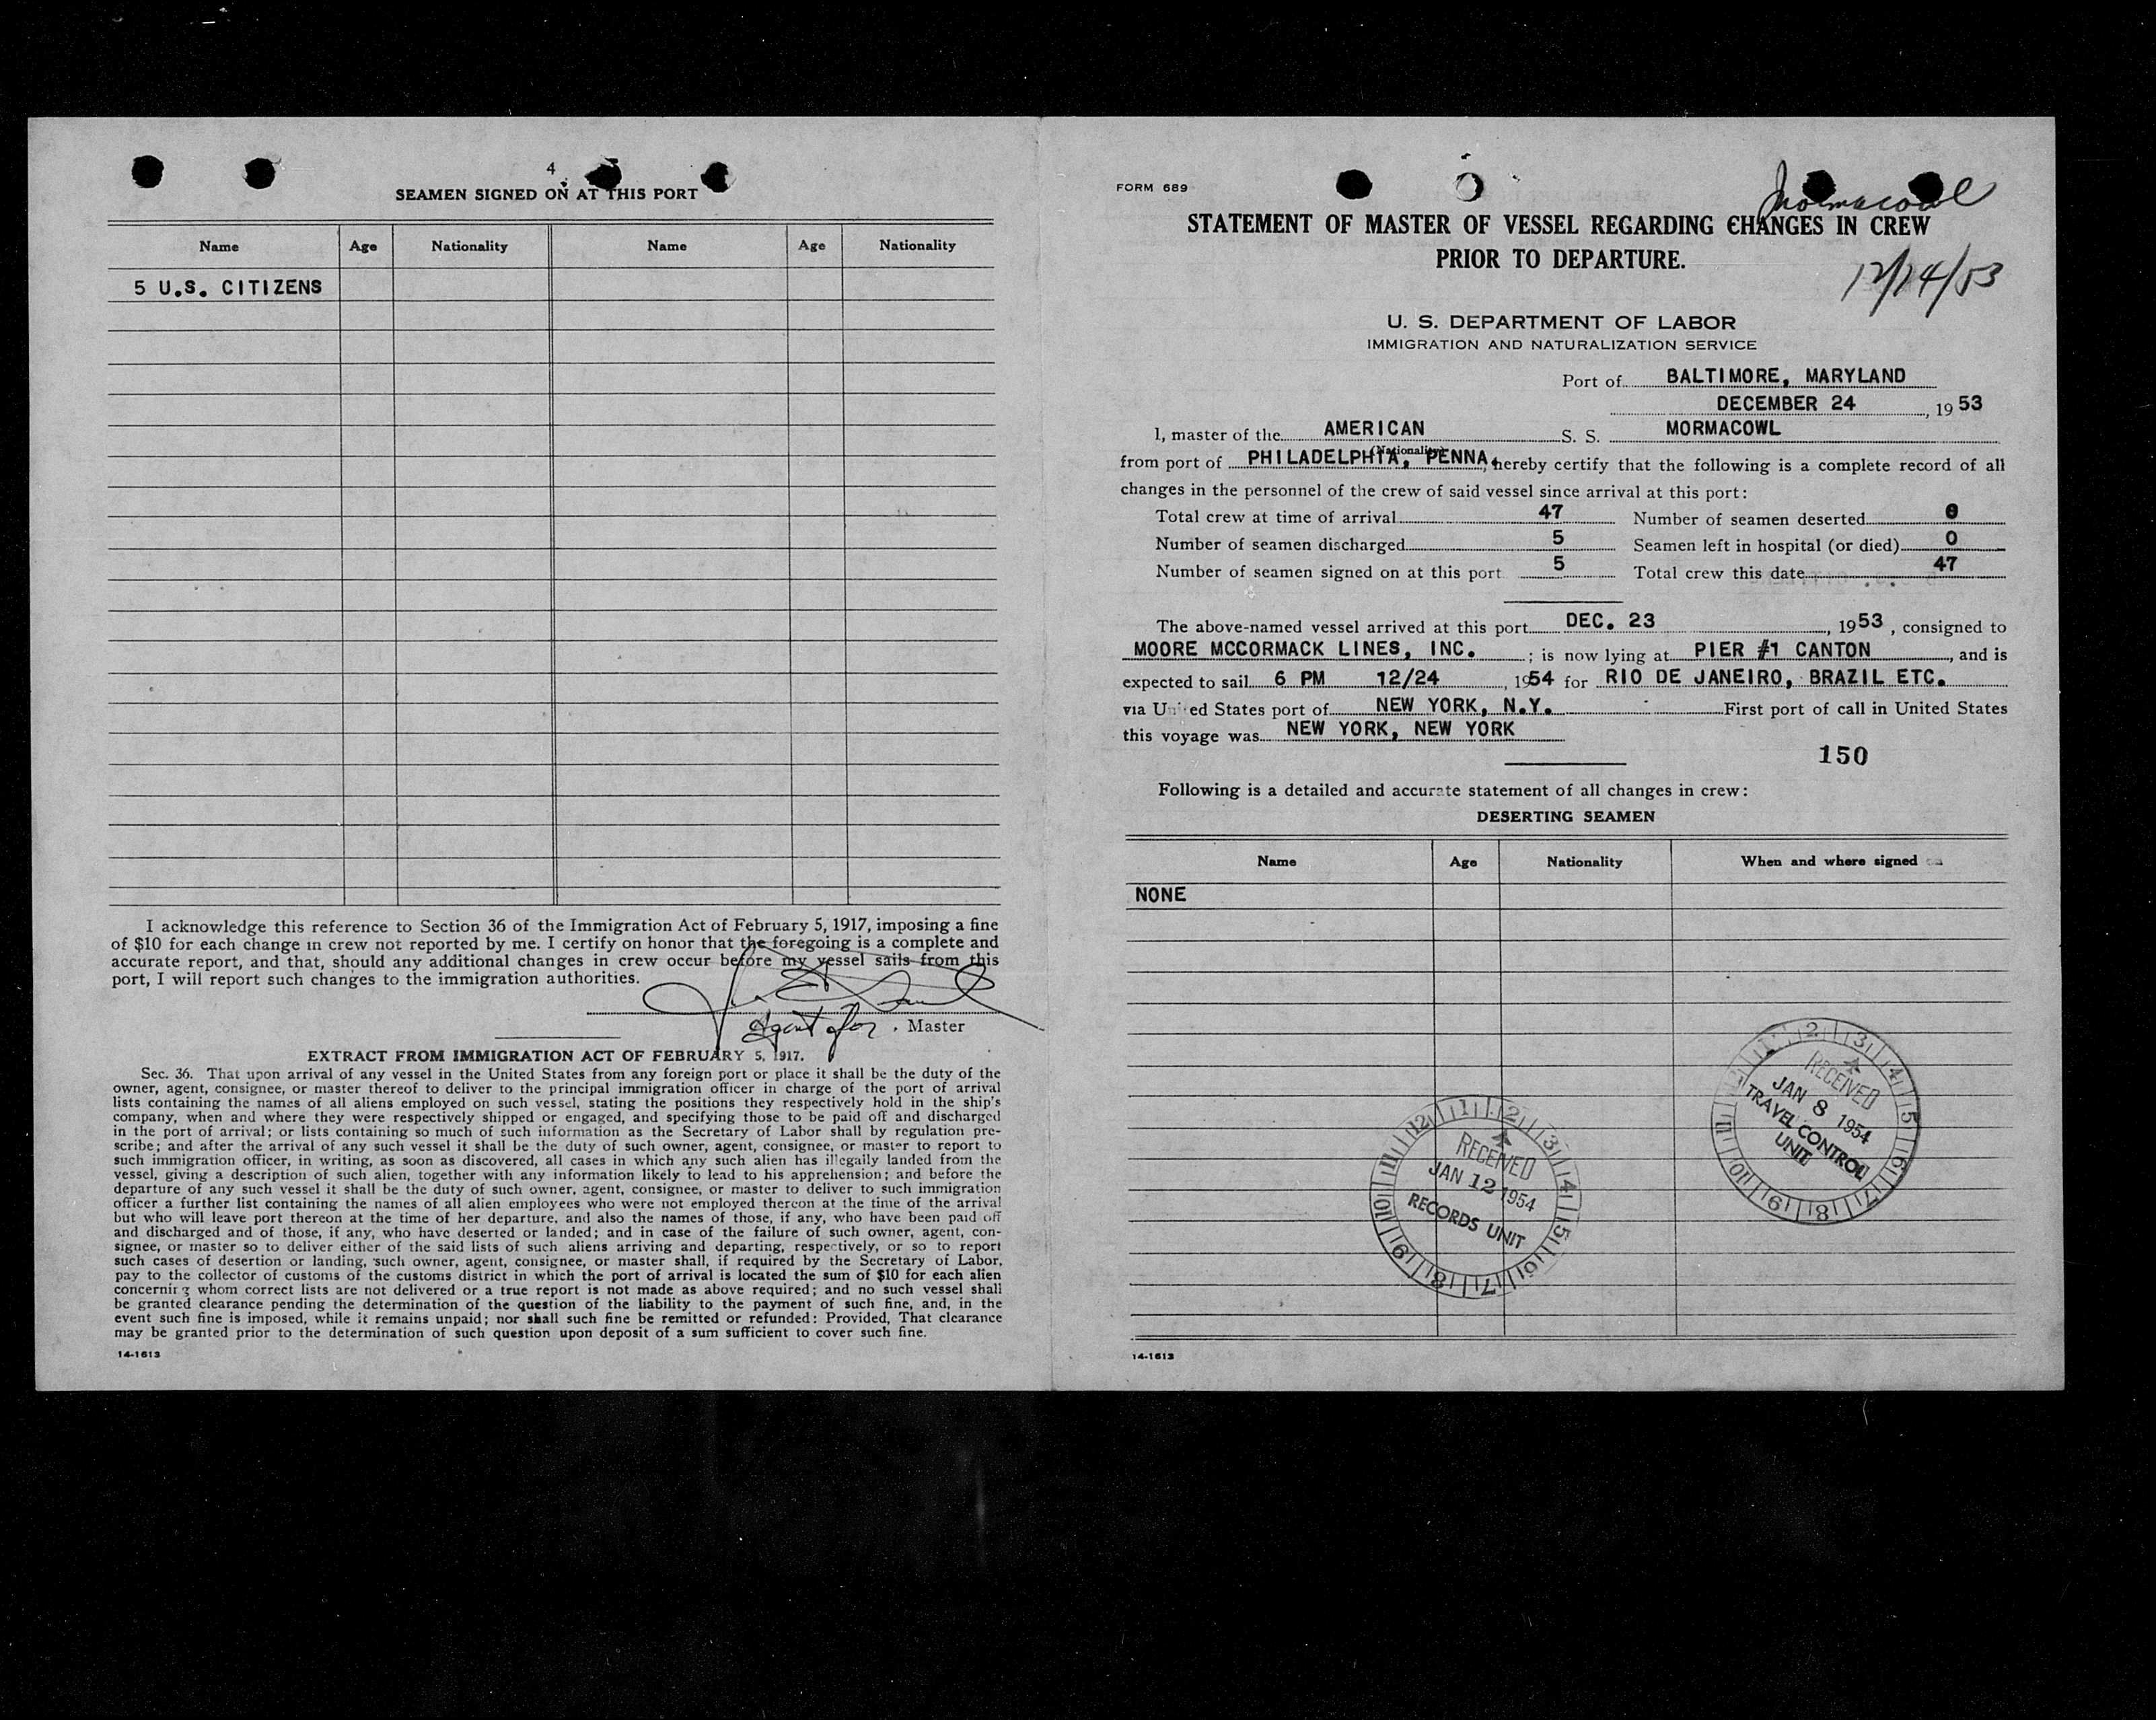 4
SEAMEN SIGNED ON AT THIS PORT
Name Age Nationality Name Age Nationality
5 U.S. CITIZENS
I acknowledge this reference to Section 36 of the Immigration Act of February 5, 1917, imposing a fine
of $10 for each change in crew not reported by me. I certify on honor that the foregoing is a complete and
accurate report, and that, should any additional changes in crew occur before my vessel sails from this
port, I will report such changes to the immigration authorities.
Agent for , Master
EXTRACT FROM IMMIGRATION ACT OF FEBRUARY 5, 1917.
Sec. 36. That upon arrival of any vessel in the United States from any foreign port or place it shall be the duty of the
owner, agent, consignee, or master thereof to deliver to the principal immigration officer in charge of the port of arrival
lists containing the names of all aliens employed on such vessel, stating the positions they respectively hold in the ship's
company, when and where they were respectively shipped or engaged, and specifying those to be paid off and discharged
in the port of arrival; or lists containing so much of such information as the Secretary of Labor shall by regulation pre-
scribe; and after the arrival of any such vessel it shall be the duty of such owner, agent, consignee, or master to report to
such immigration officer, in writing, as soon as discovered, all cases in which any such alien has illegally landed from the
vessel, giving a description of such alien, together with any information likely to lead to his apprehension; and before the
departure of any such vessel it shall be the duty of such owner, agent, consignee, or master to deliver to such immigration
officer a further list containing the names of all alien employees who were not employed thereon at the time of the arrival
but who will leave port thereon at the time of her departure, and also the names of those, if any, who have been paid off
and discharged and of those, if any, who have deserted or landed; and in case of the failure of such owner, agent, con-
signee, or master so to deliver either of the said lists of such aliens arriving and departing, respectively, or so to report
such cases of desertion or landing, such owner, agent, consignee, or master shall, if required by the Secretary of Labor,
pay to the collector of customs of the customs district in which the port of arrival is located the sum of $10 for each alien
concerning whom correct lists are not delivered or a true report is not made as above required; and no such vessel shall
be granted clearance pending the determination of the question of the liability to the payment of such fine, and, in the
event such fine is imposed, while it remains unpaid; nor shall such fine be remitted or refunded: Provided, That clearance
may be granted prior to the determination of such question upon deposit of a sum sufficient to cover such fine.
14-1613
FORM 689
Mormacowl
STATEMENT OF MASTER OF VESSEL REGARDING CHANGES IN CREW
PRIOR TO DEPARTURE.
12/24/53
U. S. DEPARTMENT OF LABOR
IMMIGRATION AND NATURALIZATION SERVICE
Port of BALTIMORE, MARYLAND
DECEMBER 24, 1953
I, master of the AMERICAN S. S. MORMACOWL
(Nationality)
from port of PHILADELPHIA, PENNA, hereby certify that the following is a complete record of all
changes in the personnel of the crew of said vessel since arrival at this port:
Total crew at time of arrival 47 Number of seamen deserted 0
Number of seamen discharged 5 Seamen left in hospital (or died) 0
Number of seamen signed on at this port 5 Total crew this date 47
The above-named vessel arrived at this port DEC. 23, 1953, consigned to
MOORE MCCORMACK LINES, INC. ; is now lying at PIER #1 CANTON, and is
expected to sail 6 PM 12/24, 1954 for RIO DE JANEIRO, BRAZIL ETC.
via United States port of NEW YORK, N.Y. First port of call in United States
this voyage was NEW YORK, NEW YORK
150
Following is a detailed and accurate statement of all changes in crew:
DESERTING SEAMEN
Name Age Nationality When and where signed on
NONE
RECEIVED
JAN 8 1954
TRAVEL CONTROL
UNIT
RECEIVED
JAN 12 1954
RECORDS UNIT
14-1613